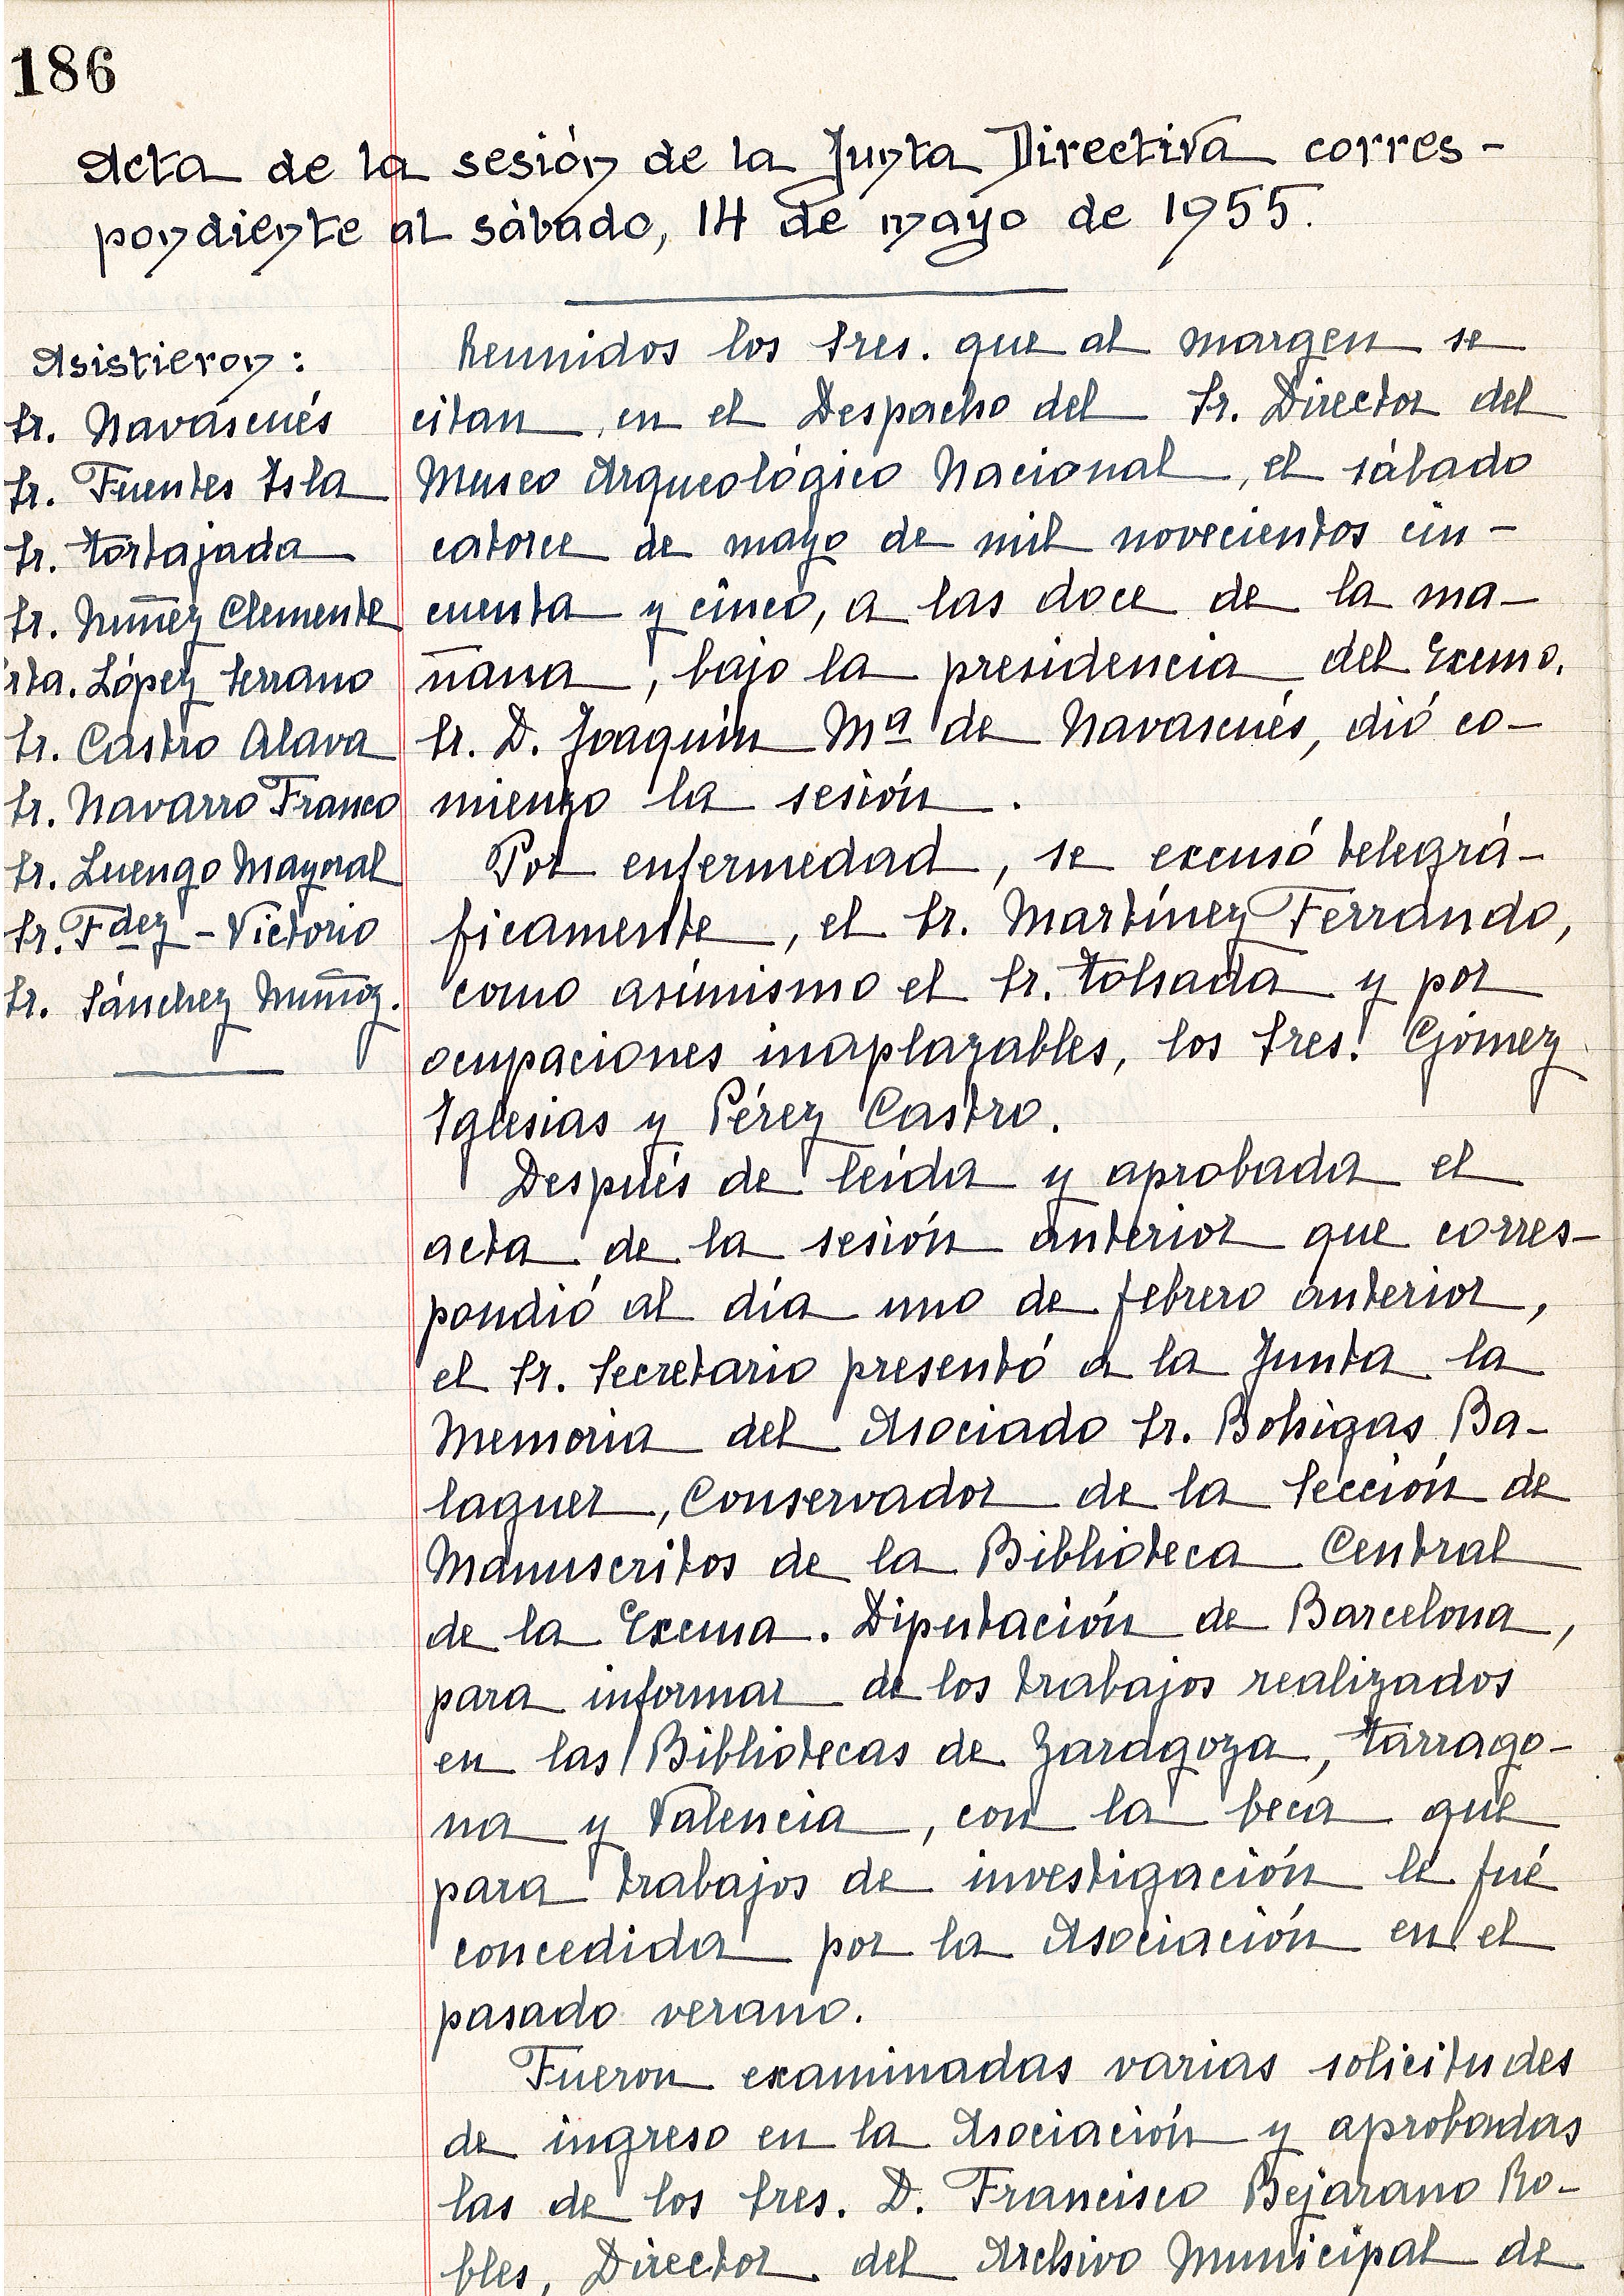 186
Acta de la sesión de la Junta Directiva corres-
pondiente al sábado, 14 de mayo de 1955.
Asistieron:
Sr. Navascués
Sr. Fuentes Isla
Sr. Tortajada
Sr. Nuñez Clemente
rta. López Serrano
Sr. Castro Alava
Sr. Navarro Franco
Sr. Luengo Mayoral
Sr. Fdez - Victorio
Sr. Sánchez Muñoz.
Reunidos los Sres. que al margen se
citan, en el Despacho del Sr. Director del
Museo Arqueológico Nacional, el sábado
catorce de mayo de mil novecientos cin-
cuenta y cinco, a las doce de la ma-
ñana, bajo la presidencia del Excmo.
Sr. D. Joaquín Mª de Navascués, dió co-
mienzo la sesión.
Por enfermedad, se excusó telegrá-
ficamente, el Sr. Martínez Ferrando,
como asímismo el Sr. Tolsada y por
ocupaciones inaplazables, los Sres. Gómez
Iglesias y Pérez Castro.
Después de leída y aprobada el
acta de la sesión anterior que corres-
pondió al día uno de febrero anterior,
el Sr. Secretario presentó a la Junta la
Memoria del Asociado Sr. Bohigas Ba-
laguer, Conservador de la Sección de
Manuscritos de la Biblioteca Central
de la Excma. Diputación de Barcelona,
para informar de los trabajos realizados
en las Bibliotecas de Zaragoza, Tarrago-
na y Valencia, con la beca que
para trabajos de investigación le fué
concedida por la Asociación en el
pasado verano.
Fueron examinadas varias solicitudes
de ingreso en la Asociación y aprobadas
las de los Sres. D. Francisco Bejarano Ro-
bles, Director del Archivo Municipal de